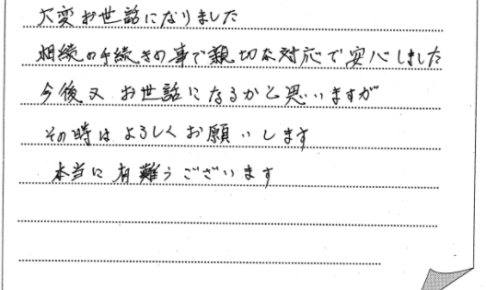 大変お世話になりました
相続の手続きの事で親切な対応で安心しました
今後又お世話になるかと思いますが
その時はよろしくお願いします
本当に有難うございます